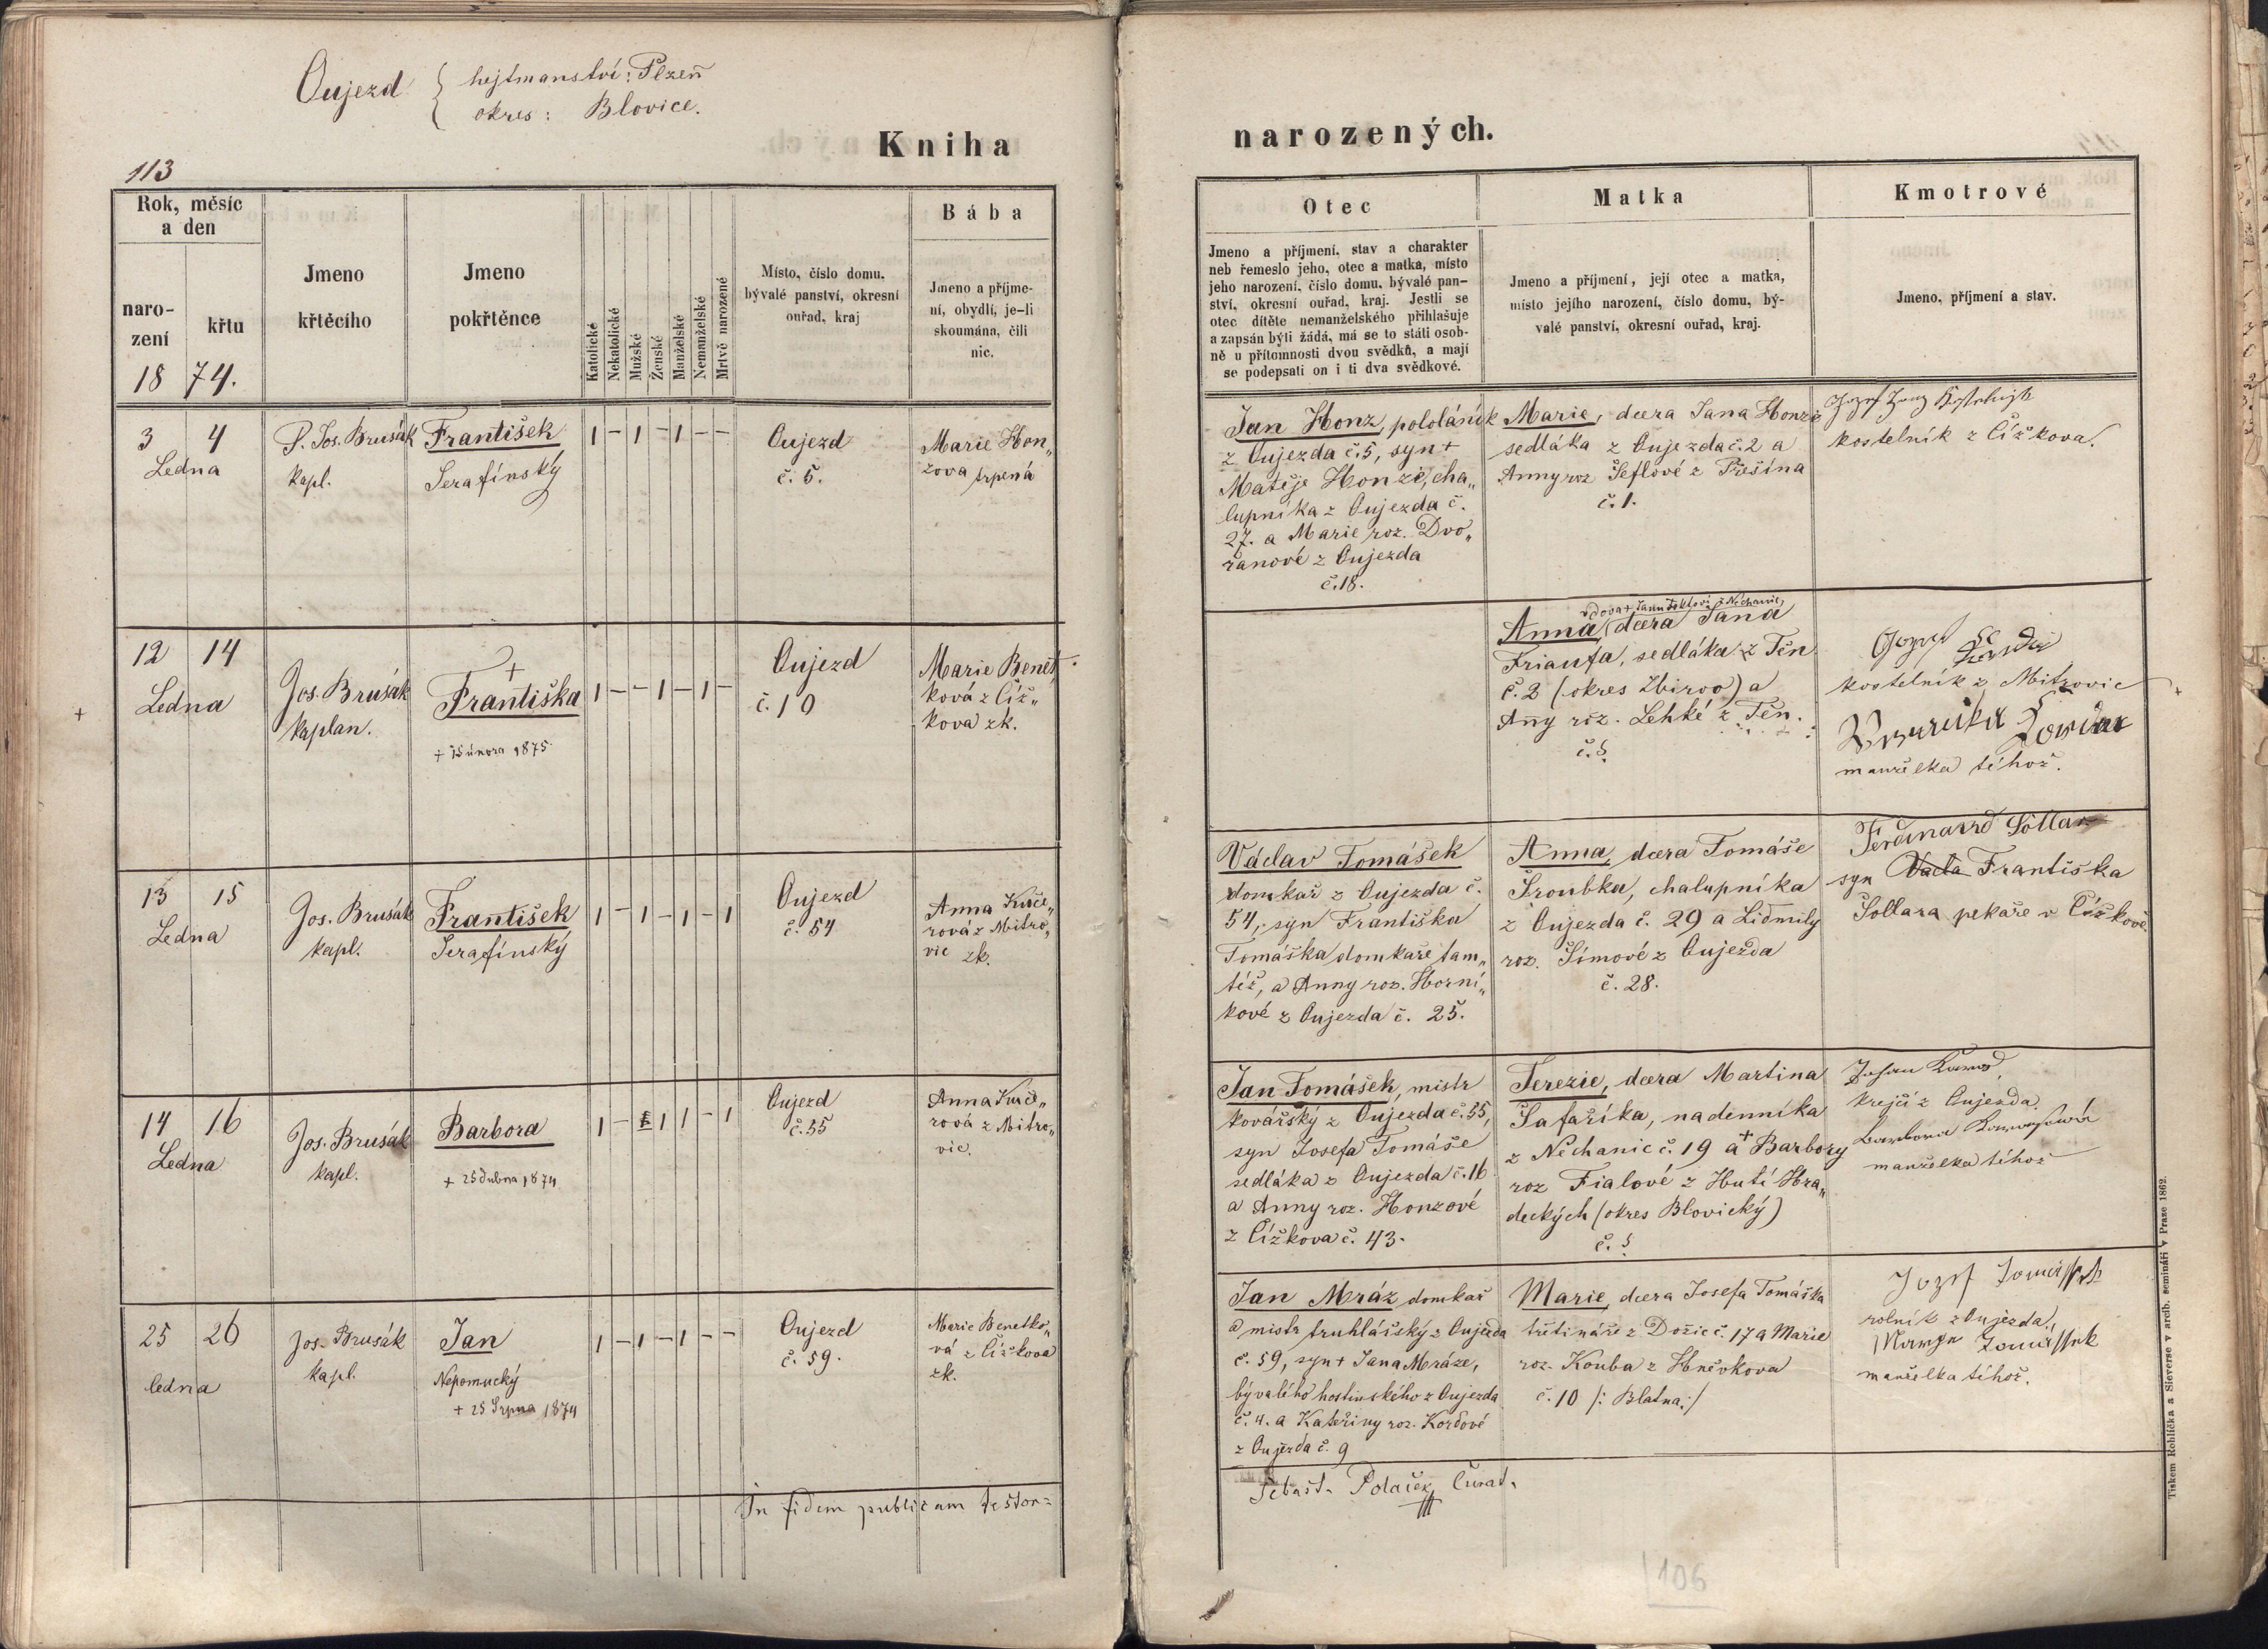 Oujezd { hejtmanství: Plzeň
okres: Blovice.
Kniha
narozených.
113
Rok, měsíc
a den
naro-
zení
křtu
18 74.
Jmeno
křtěcího
Jmeno
pokřtěnce
Katolické
Nekatolické
Mužské
Ženské
Manželské
Nemanželské
Mrtvě narozené
Místo, číslo domu,
bývalé panství, okresní
ouřad, kraj
Bába
Jmeno a příjme-
ní, obydlí, je-li
skoumána, čili
nic.
Otec
Jmeno a příjmení, stav a charakter
neb řemeslo jeho, otec a matka, místo
jeho narození, číslo domu, bývalé pan-
ství, okresní ouřad, kraj. Jestli se
otec dítěte nemanželského přihlašuje
a zapsán býti žádá, má se to státi osob-
ně u přítomnosti dvou svědků, a mají
se podepsati on i ti dva svědkové.
Matka
Jmeno a příjmení, její otec a matka,
místo jejího narození, číslo domu, bý-
valé panství, okresní ouřad, kraj.
Kmotrové
Jmeno, příjmení a stav.
3 4
Ledna
P. Jos. Brusák
kapl.
František
Serafínský
1 – 1 – 1 – –
Oujezd
č. 5.
Marie Hon„
zova trpená
Jan Honz, pololáník
z Oujezda č. 5, syn +
Matěje Honze, cha„
lupníka z Oujezda č.
27. a Marie roz. Dvo„
řanové z Oujezda
č. 18.
Marie, dcera Jana Honze
sedláka z Oujezda č. 2 a
Anny roz Šeflové z Přešína
č. 1.
kostelník z Čížkova.
12 14
Ledna
Jos. Brusák
kaplan.
+
Františka
+ 15 února 1875.
1 – – 1 – 1 –
Oujezd
č. 10
Marie Benet„
ková z Číž„
kova zk.
vdova + Janu z Nechanic,
Anna, dcera Jana
Friaufa, sedláka z Těn
č. 2 (okres Zbirov) a
Any roz. Lehké z Těn.
č. ?
Jozef
kostelník z Mitrovic
manželka téhož.
13 15
Ledna
Jos. Brusák
kapl.
František
Serafínský
1 – 1 – 1 – 1
Oujezd
č. 54
Anna Kuče„
rová z Mitro„
vic zk.
Václav Tomášek
domkař z Oujezda č.
54, syn Františka
Tomáška domkaře tam„
též, a Anny roz. Horní„
kové z Oujezda č. 25.
Anna, dcera Tomáše
Šroubka, chalupníka
z Oujezda č. 29 a Lidmily
roz. Šímové z Oujezda
č. 28.
Ferdinand Šollar
syn Vacla Františka
Šollara pekaře v Čížkově.
14 16
Ledna
Jos. Brusák
kapl.
Barbora
+ 25 dubna 1874
1 – 1 1 – 1
Oujezd
č. 55
Anna Kuče„
rová z Mitro„
vic.
Jan Tomášek, mistr
kovářský z Oujezda č. 55,
syn Josefa Tomáše
sedláka z Oujezda č. 16
a Anny roz. Honzové
z Čížkova č. 43.
Terezie, dcera Martina
Šafaříka, nadenníka
z Nechanic č. 19 a + Barbory
roz Fialové z Hutí Hra„
deckých (okres Blovický)
č. ?
krejčí z Oujezda.
Barbora
manželka téhož
25 26
ledna
Jos. Brusák
kapl.
Jan
Nepomucký
+ 25 Srpna 1874
1 – 1 – 1 – –
Oujezd
č. 59.
Marie Benetko„
vá z Čížkova
zk.
Jan Mráz domkař
a mistr truhlářský z Oujezda
č. 59, syn + Jana Mráze,
bývalého hostinského z Oujezda
č. 4. a Kateřiny roz. Kordové
z Oujezda č. 9
Marie, dcera Josefa Tomáška
třetináře z Dožic č. 17 a Marie
roz. Kouba z Hněvkova
č. 10 /: Blatna :/
Jozef Tomaššek
rolník z Oujezda,
Tomaššek
manželka téhož.
In fidem publicam testor=
Šebast. Polaček Curat.
106
Tiskem Rohlíčka a Sieverse v arcib. semináři v Praze 1862.